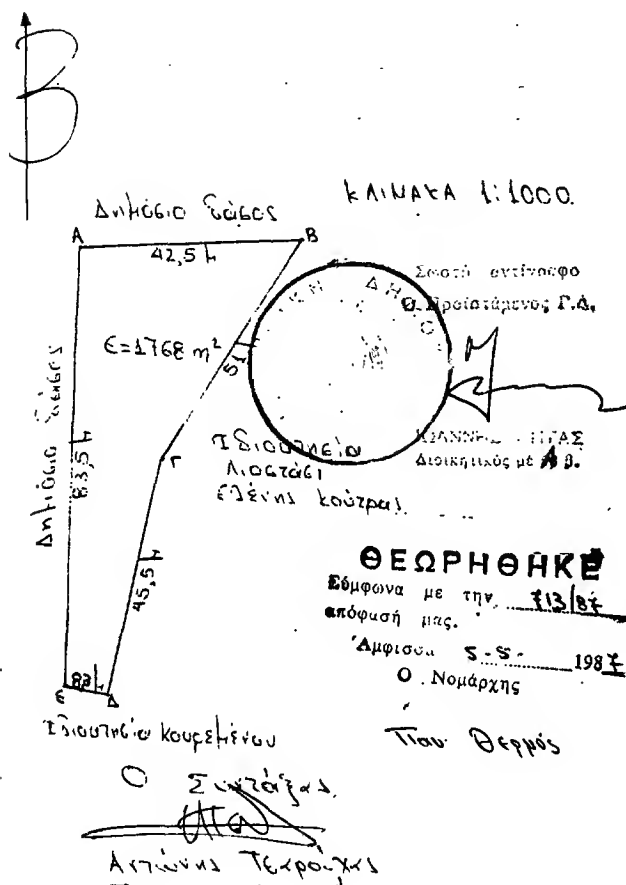 Β
ΚΛΙΜΑΚΑ 1:1000.
Δημόσιο δάσος
Α
Β
42,5 μ
Σωστό αντίγραφο
Ο Προϊστάμενος Γ.Δ.
Ε=1768 m²
51
Δημόσιο δάσος
83,5 μ
Γ
Ιδιοκτησία
Λιοστάσι
Ελένης Κούτρας
ΙΩΑΝΝΗΣ
Διοικητικός με Α β.
45,5 μ
ΘΕΩΡΗΘΗΚΕ
Σύμφωνα με την 713/87
απόφασή μας.
Άμφισσα 5-5- 1987
Ο Νομάρχης
Παν Θερμός
Ε
8,3
Δ
Ιδιοκτησία Κουρεμένου
Ο Συντάξας
Αντώνης